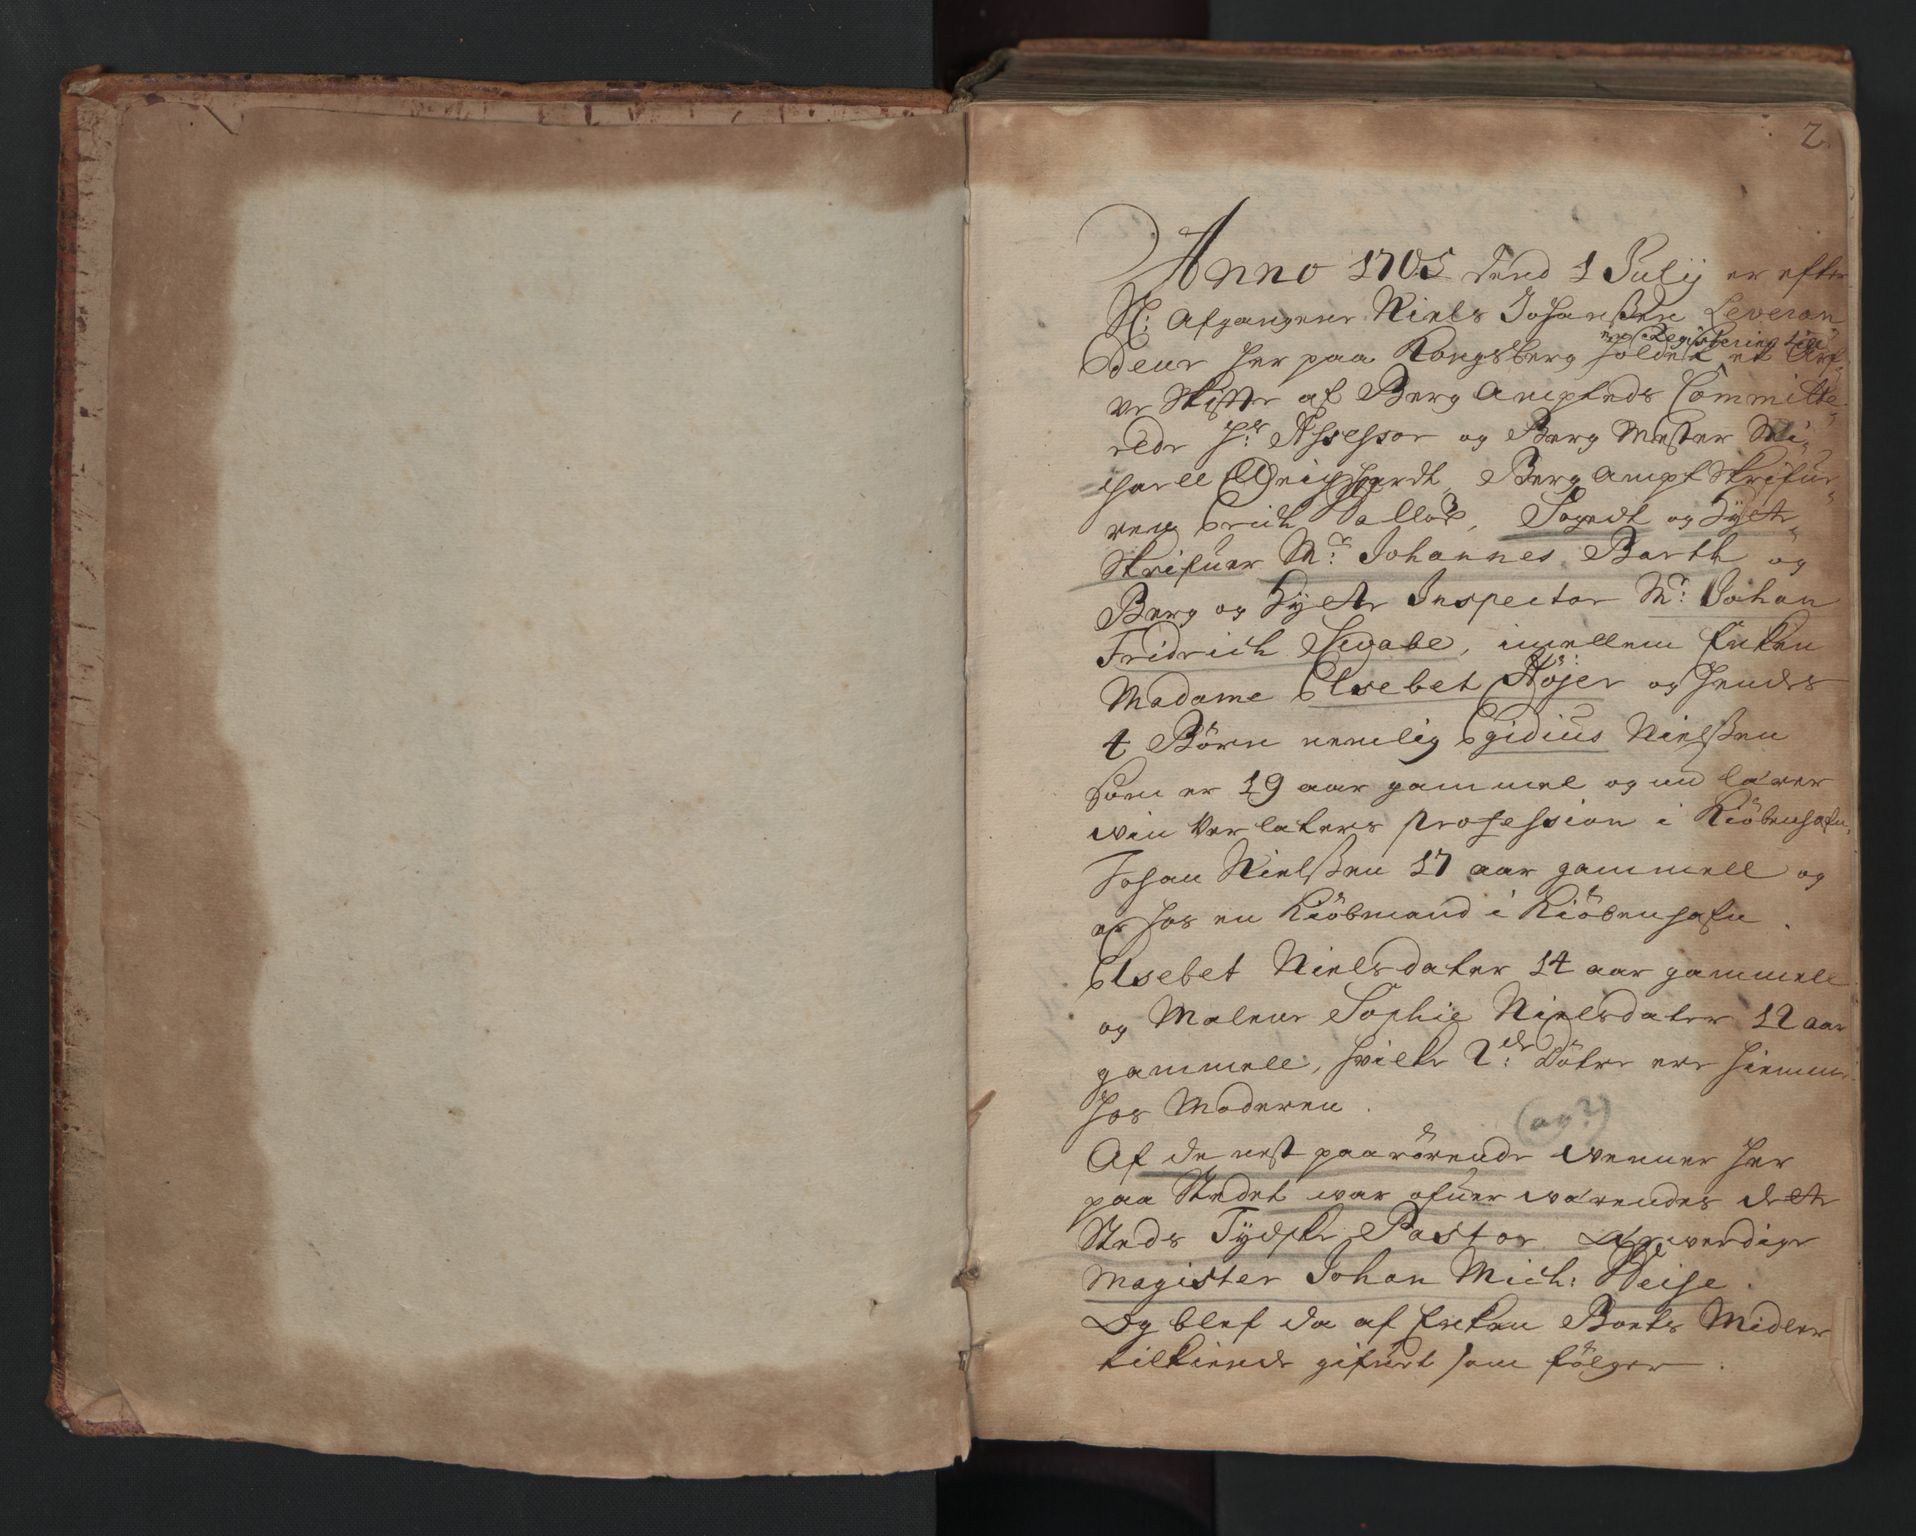 2.
Anno 1705 dend 1 Julij er efter
Sl: Afgangene Niels Johanßen Leveran
en Registering till
deur her paa Kongsberg holdet et Arf-
ve Skiffte af Berg Ampteds Committe-
rede Hr: Assessor og Berg Mester Mi-
chaell Heinrich Berg Ampt Skrifue-
ren Erich, Fogedt og Hytte-
Skrifuer Mr: Johannes Barth og
Berg og Hytte Inspector Mr: Johan
Fridrich Swabe, imellem Enken
Madame Elsebet Höjer og hendes
4 Börn nemlig Egidius Nielßen
som er 19 aar gammel og nu lærer
vin verlaters profession i Kiöbenhafn,
Johan Nielßen 17 aar gammell og
er hos en Kiöbmand i Kiöbenhafn.
Elsebet Nielsdater 14 aar gammell
og Malene Sophie Nielsdater 12 aar
gammell, hvilke 2de: Döttre ere hiemme
hos Moderen.
(og?)
Af de nest paarörende Wenner her
paa Stedet war ofuerwærendes dette
Steds Tydske Pastor Ærwerdige
Magister Johan Mich: Weise.
Og blef da af Enken Boets Midler
tilkiende gifuet som fölger.